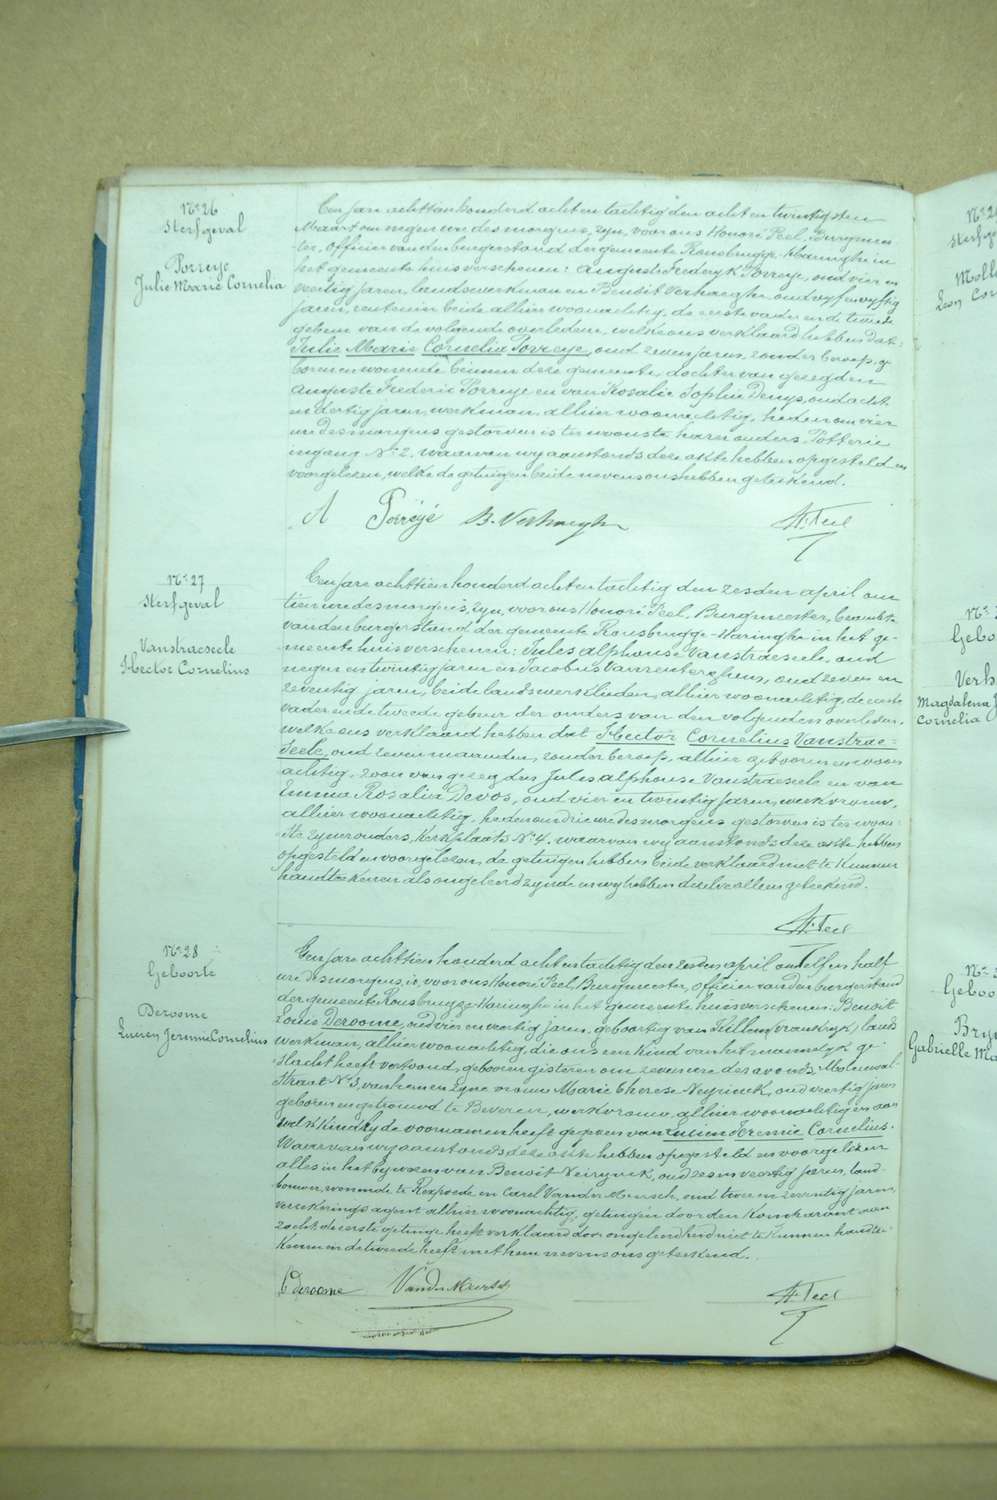 Nr 26
Sterfgeval
Porreye
Julie Marie Cornelia
Een jare achttien honderd acht en tachtig den acht en twintigsten
Maart om negen ure des morgens, zyn, voor ons Honoré Peel, Burgmees-
ter, officier van den burgerstand der gemeente Rousbrugge-Haringhe in
het gemeente huis verschenen: Auguste Frederyk Porreye, oud vier en
veertig jaren, landswerkman en Benoit Verhaeghe oud vyf en vyftig
jaren, rentenier beide alhier woonachtig, de eerste vader en de tweede
gebeur van de volgende overledene, welke ons verklaard hebben dat:
Julie Marie Cornelia Porreye, oud zeven jaren, zonder beroep, ge-
boren en wonende binnen deze gemeente, dochter van gezegden
Auguste Frederic Porreye en van Rosalie Sophie Denys, oud acht
en dertig jaren, werkvrouw, alhier woonachtig, heden om vier
ure des morgens gestorven is ter woonste harer ouders, Potterie
ingang Nr 2, waarvan wy aanstonds deze akte hebben opgesteld en
voorgelezen, welke de getuigen beide nevens ons hebben geteekend.
A Porreyé B. Verhaeghe H. Peel
Nr 27
Sterfgeval
Vanstraeseele
Hector Cornelius
Een jare achttien honderd acht en tachtig den zesden april om
tien ure des morgens, zyn, voor ons Honoré Peel, Burgmeester, beambte
van den burgerstand der gemeente Rousbrugge-Haringhe in het ge-
meente huis verschenen: Jules Alphonse Vanstraeseele, oud
negen en twintig jaren en Jacobus Vanrenterghem, oud zeven en
zeventig jaren, beide landswerklieden, alhier woonachtig, de eerste
vader en de tweede gebeur der ouders van den volgenden overleden,
welke ons verklaard hebben dat Hector Cornelius Vanstrae-
seele, oud zeven maanden, zonder beroep, alhier geboren en woon-
achtig, zoon van gezegden Jules Alphonse Vanstraeseele en van
Emma Rosalia Devos, oud vier en twintig jaren, werkvrouw,
alhier woonachtig, heden om drie ure des morgens gestorven is ter woon-
ste zyner ouders, Kerkplaats Nr 4, waarvan wy aanstonds deze akte hebben
opgesteld en voorgelezen, de getuigen hebben beide verklaard niet te kunnen
handteekenen als ongeleerd zynde en wy hebben dezelve alleen geteekend.
H. Peel
Nr 28
Geboorte
Deroome
Lucien Jeremie Cornelius
Een jare achttien honderd acht en tachtig den zesden april om elf en half
ure des morgens, is, voor ons Honoré Peel, Burgmeester, officier van den burgerstand
der gemeente Rousbrugge-Haringhe in het gemeente huis verschenen: Benoit
Louis Deroome, oud vier en veertig jaren, geboortig van Killem (Frankryk) lands
werkman, alhier woonachtig, die ons een kind van het mannelyk ge-
slacht heeft vertoond, geboren gisteren om zeven ure des avonds, Molenwal-
straat Nr 3, van hem en zyne vrouw Marie Therese Neyrinck, oud veertig jaren
geboren en getrouwd te Beveren, werkvrouw, alhier woonachtig en aan
welk kind hy de voornamen heeft gegeven van Lucien Jeremie Cornelius.
Waarvan wy aanstonds deze akte hebben opgesteld en voorgelezen
alles in het bywezen van Benoit Neirynck, oud zes en veertig jaren, land-
bouwer, wonende te Rexpoede en Carel Vander Meersch, oud twee en zeventig jaren
verzekerings agent alhier woonachtig, getuigen door den Komparant aan
zocht, de eerste getuige heeft verklaard door ongeleerdheid niet te kunnen handtee-
kenen en de tweede heeft met hem nevens ons geteekend.
Deroome Vander Meersch H. Peel
Sterfge
Moll
Leon Cor
Gebo
Verh
Magdalena
Cornelia
Geboo
Bry
Gabrielle Ma